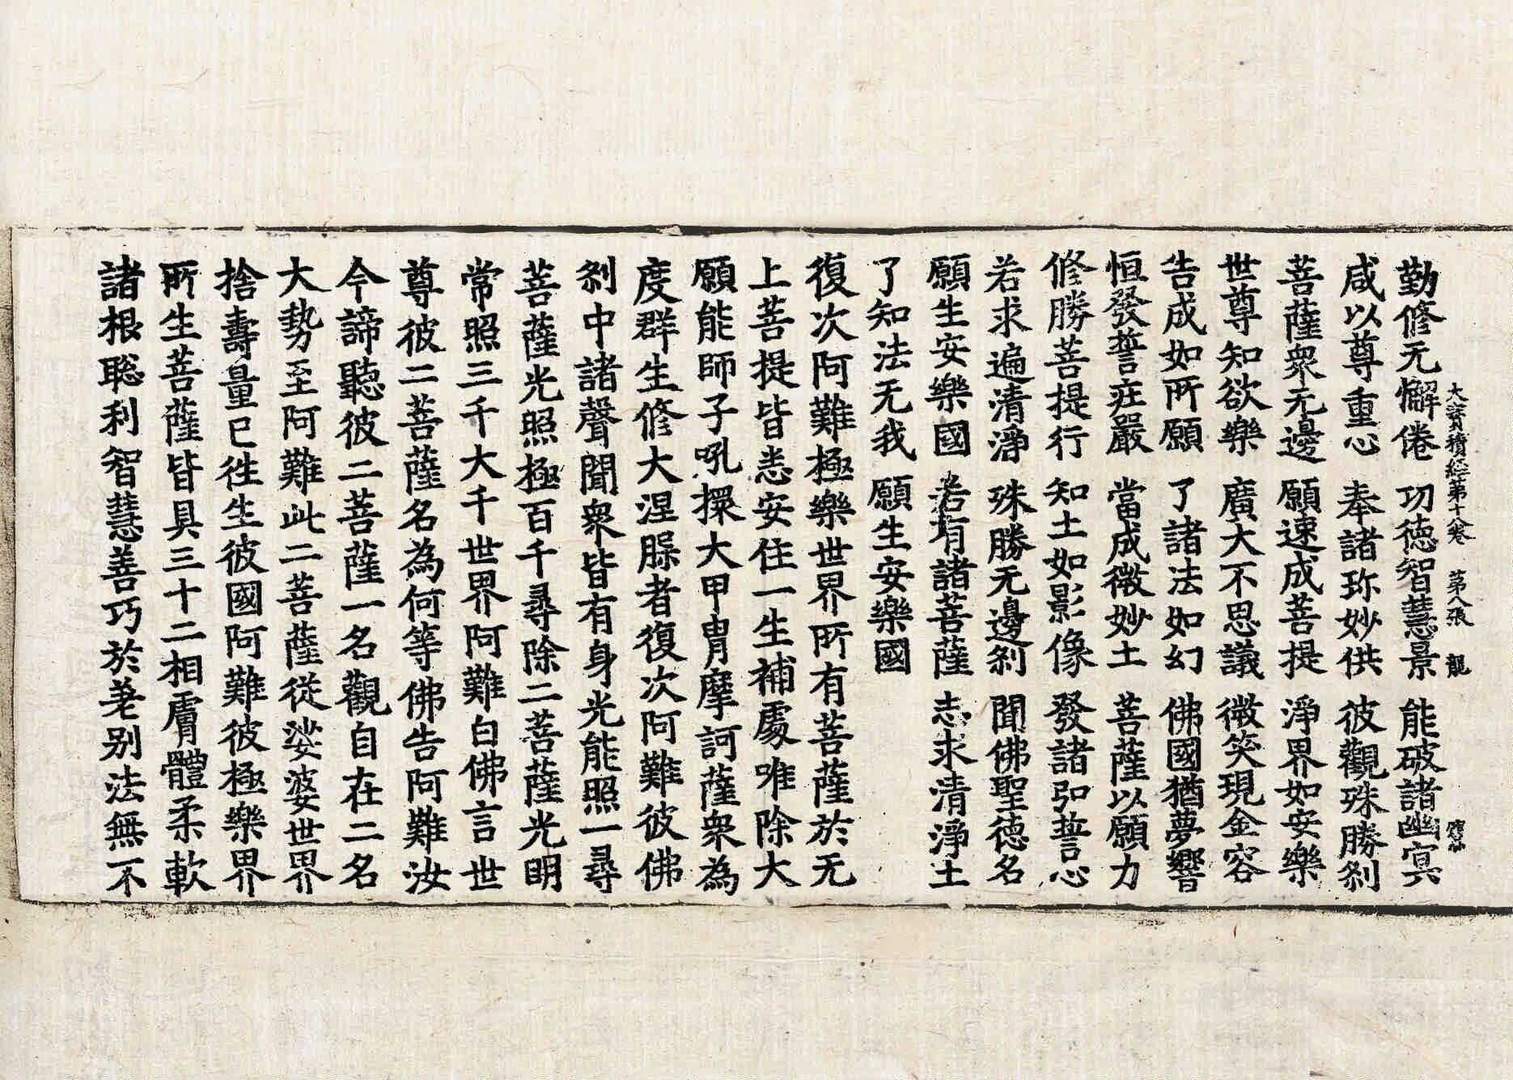 大寶積經第十八卷 第八張 龍
勤修无懈倦 功德智慧景 能破諸幽冥
咸以尊重心 奉諸珎妙供 彼觀殊勝刹
菩薩衆无邊 願速成菩提 淨界如安樂
世尊知欲樂 廣大不思議 微笑現金容
告成如所願 了諸法如幻 佛國猶夢響
恒發誓莊嚴 當成微妙土 菩薩以願力
修勝菩提行 知土如影像 發諸弘誓心
若求遍清淨 殊勝无邊刹 聞佛聖德名
願生安樂國 若有諸菩薩 志求清淨土
了知法无我 願生安樂國
復次阿難極樂世界所有菩薩於无
上菩提皆悉安住一生補處唯除大
願能師子吼擐大甲胄摩訶薩衆為
度群生修大涅槃者復次阿難彼佛
刹中諸聲聞衆皆有身光能照一尋
菩薩光照極百千尋除二菩薩光明
常照三千大千世界阿難白佛言世
尊彼二菩薩名為何等佛告阿難汝
今諦聽彼二菩薩一名觀自在二名
大勢至阿難此二菩薩從娑婆世界
捨壽量已往生彼國阿難彼極樂界
所生菩薩皆具三十二相膚體柔軟
諸根聡利智慧善巧於差别法無不